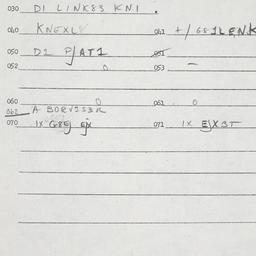 030 DI LINK83 KNI .
040 KNEXL 041 +/681LENK
050 D1 P/AT1 051
052 0 053 –
060 0 061 0
062 A BORV253R
070 1X G8EJ EJX 071 1X EJXST